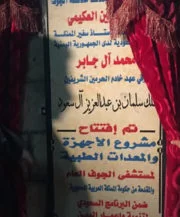 ـين العكيمي
سفير المملكة
ـودية لدى الجمهورية اليمنية
محمد آل جابر
في عهد خادم الحرمين الشريفين
ـلك سلمان بن عبدالعزيز آل سعود
تم إفتتاح
مشروع الأجهزة
والمعدات الطبية
لمستشفى الجوف العام
والمقدمة من حكومة المملكة العربية السعودية
ضمن البرنامج السعودي